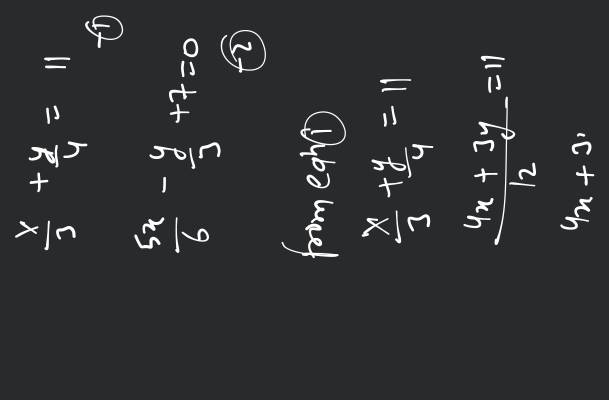 x/3 + y/4 = 11 —①
5x/6 - y/3 + 7 = 0 —②
from eqn ①
x/3 + y/4 = 11
(4x + 3y)/12 = 11
4x + 3